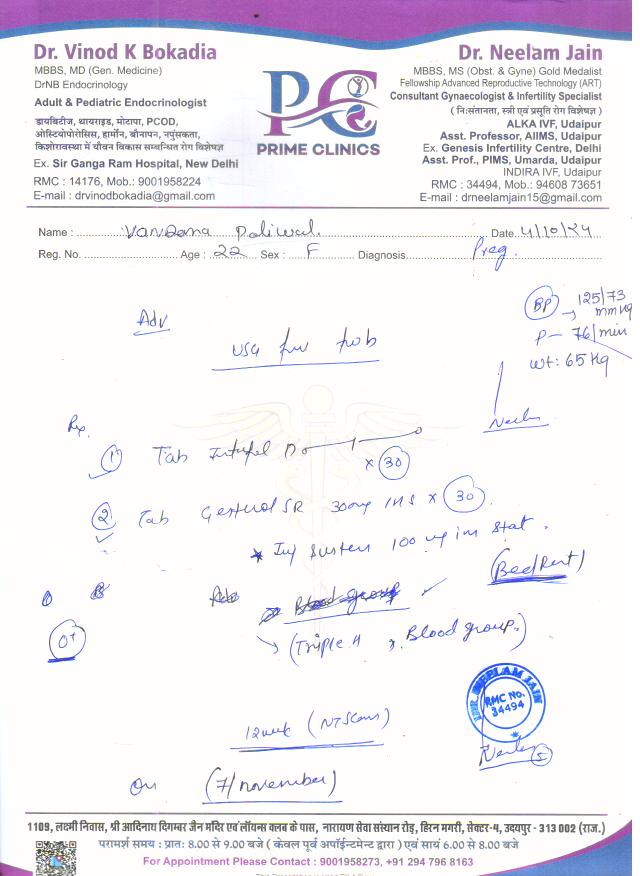 Dr. Vinod K Bokadia
MBBS, MD (Gen. Medicine)
DrNB Endocrinology
Adult & Pediatric Endocrinologist
डायबिटीज, थायराइड, मोटापा, PCOD,
ओस्टियोपोरोसिस, हार्मोन, बौनापन, नपुंसकता,
किशोरावस्था में यौवन विकास सम्बन्धित रोग विशेषज्ञ
Ex. Sir Ganga Ram Hospital, New Delhi
RMC : 14176, Mob.: 9001958224
E-mail : drvinodbokadia@gmail.com
PRIME CLINICS
Dr. Neelam Jain
MBBS, MS (Obst. & Gyne) Gold Medalist
Fellowship Advanced Reproductive Technology (ART)
Consultant Gynaecologist & Infertility Specialist
( नि:संतानता, स्त्री एवं प्रसूति रोग विशेषज्ञ )
ALKA IVF, Udaipur
Asst. Professor, AIIMS, Udaipur
Ex. Genesis Infertility Centre, Delhi
Asst. Prof., PIMS, Umarda, Udaipur
INDIRA IVF, Udaipur
RMC : 34494, Mob.: 94608 73651
E-mail : drneelamjain15@gmail.com
Name : Vandana Paliwal Date. 4/10/24
Reg. No. Age : 22 Sex : F Diagnosis Preg.
BP → 125/73 mmHg
P - 76/min
wt: 65 Kg
Adv
USG
Rx.
1 Tab D x 30
2 Tab SR 300mg x 30
* Inj Susten 100 mg im stat.
(Bed Rest)
Blood group
O+
(Triple A, Blood group)
12 week (NT Scan)
DR. NEELAM JAIN
RMC No.
34494
On (7/november)
1109, लक्ष्मी निवास, श्री आदिनाथ दिगम्बर जैन मंदिर एवं लॉयन्स क्लब के पास, नारायण सेवा संस्थान रोड़, हिरन मगरी, सेक्टर-4, उदयपुर - 313 002 (राज.)
परामर्श समय : प्रातः 8.00 से 9.00 बजे ( केवल पूर्व अपॉईन्टमेन्ट द्वारा ) एवं सायं 6.00 से 8.00 बजे
For Appointment Please Contact : 9001958273, +91 294 796 8163